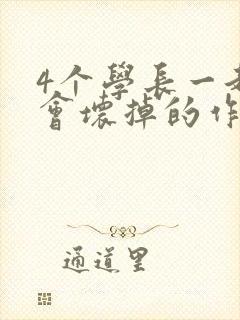 4个學長一
會壞掉的作
通道里